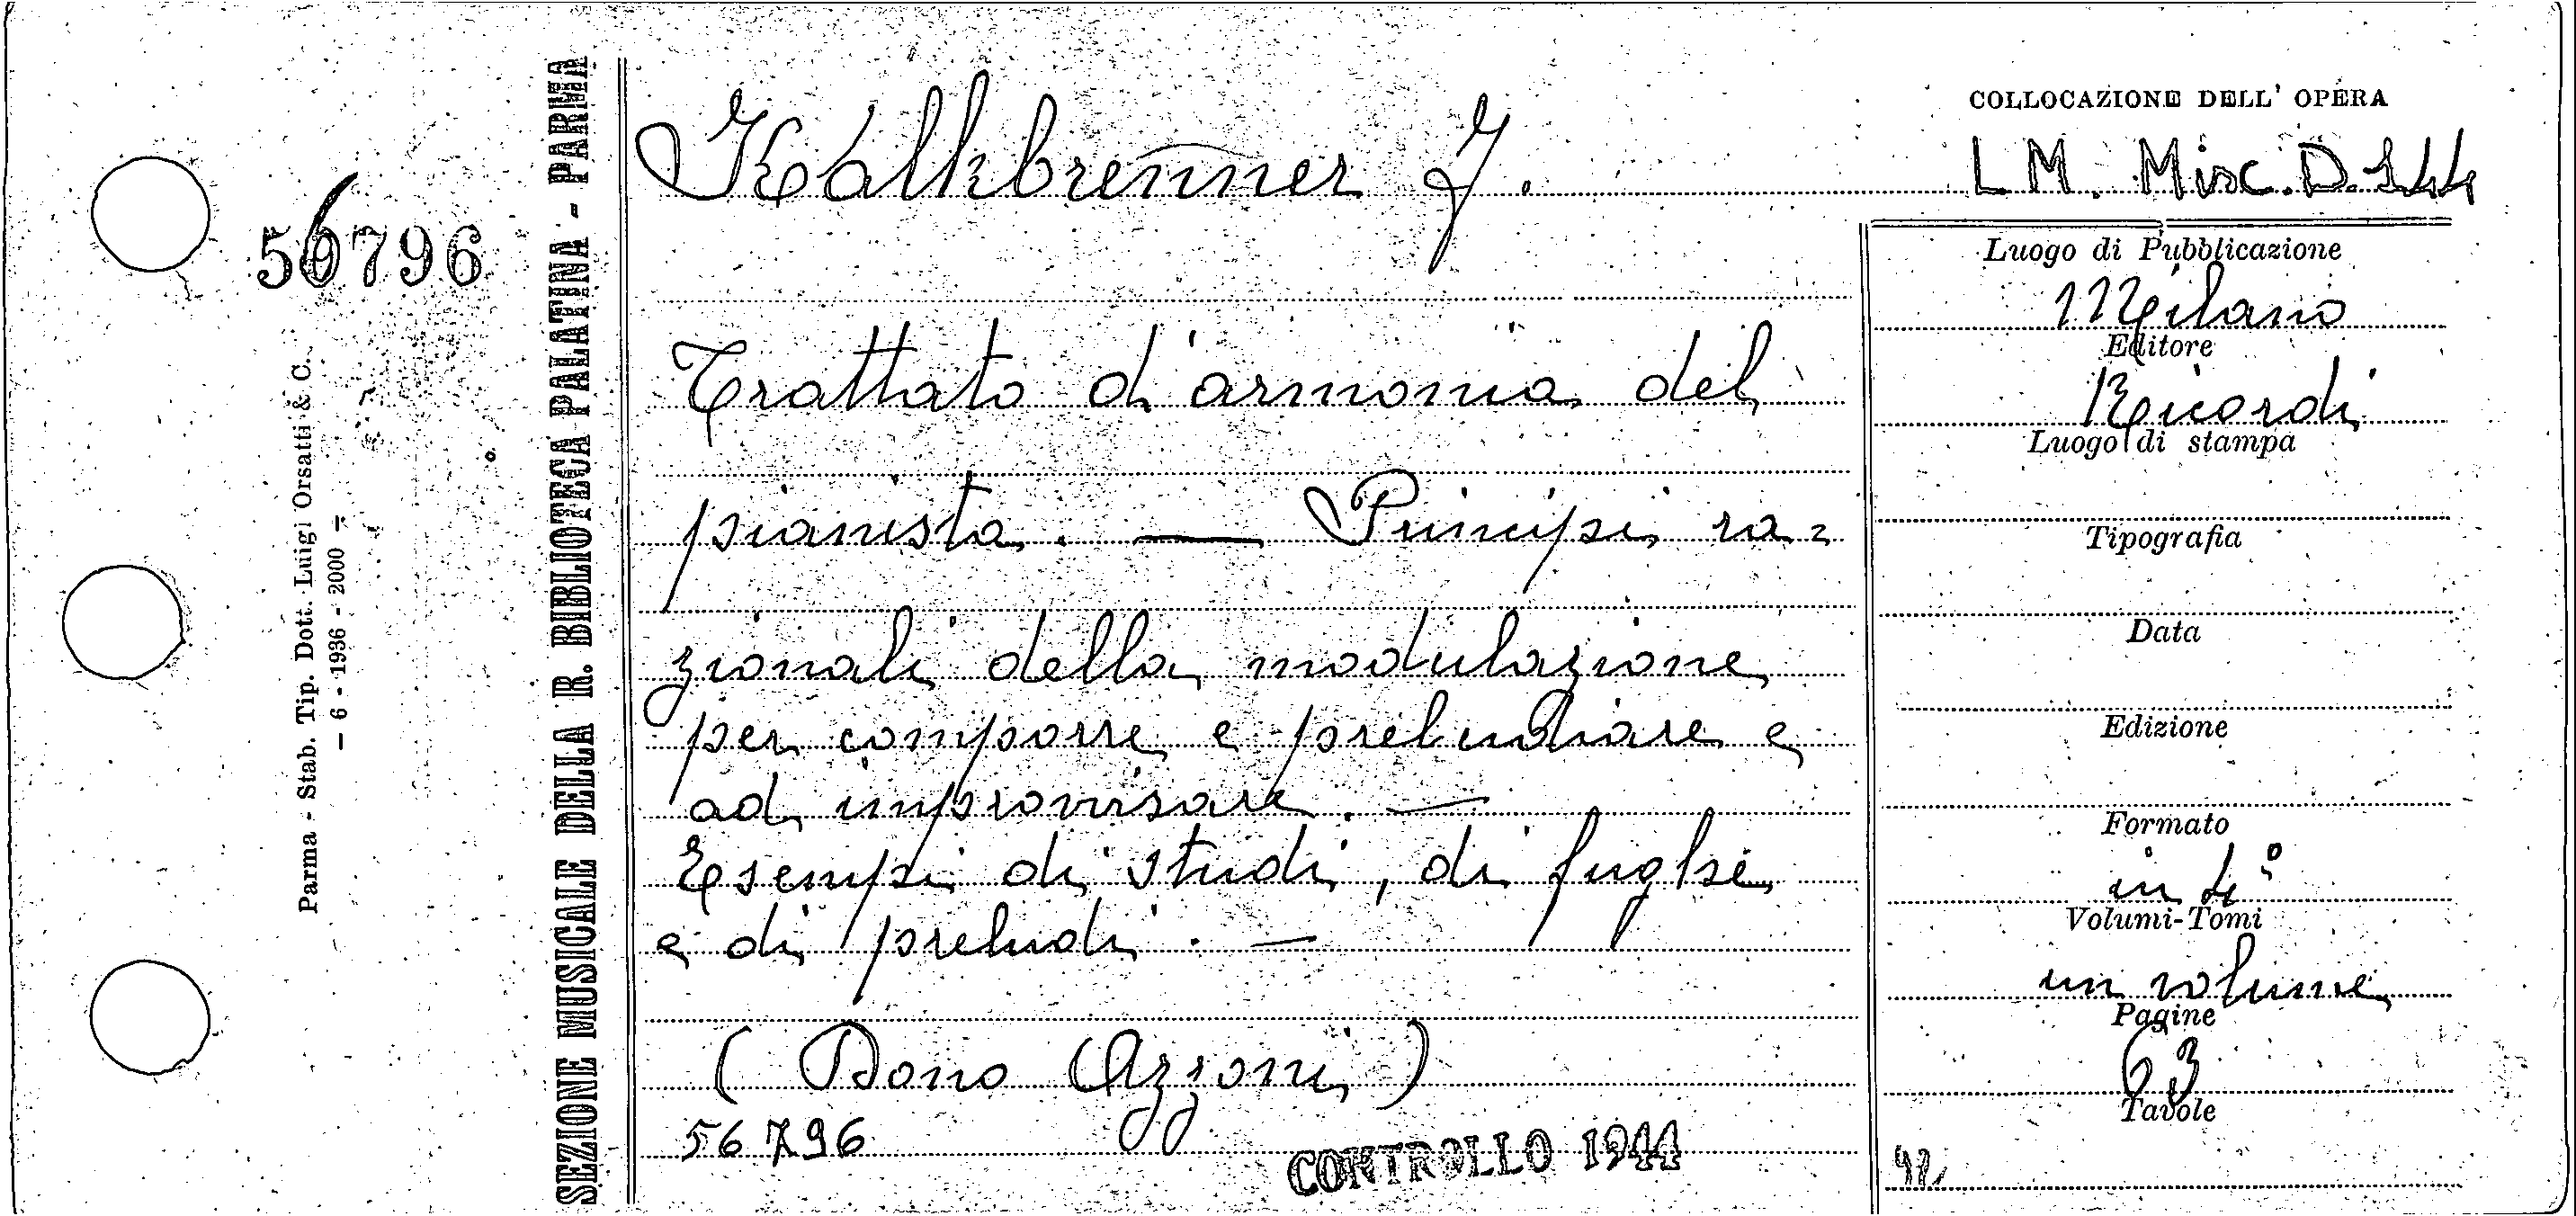 56796
Parma - Stab. Tip. Dott. Luigi Orsatti & C.
— 6 - 1936 - 2000 —
SEZIONE MUSICALE DELLA R. BIBLIOTECA PALATINA - PARMA
Kalkbrenner J.
Trattato d'armonia del
pianista. — Principi ra=
zionali della modulazione
per comporre e preludiare e
ad improvisare. —
Esempi di studi, di fughe
e di preludi. —
(Dono Azzoni)
56796
CONTROLLO 1944
COLLOCAZIONE DELL' OPERA
L M. Misc. D. 144
Luogo di Pubblicazione
Milano
Editore
Ricordi
Luogo di stampa
Tipografia
Data
Edizione
Formato
in 4°
Volumi-Tomi
un volume
Pagine
63
Tavole